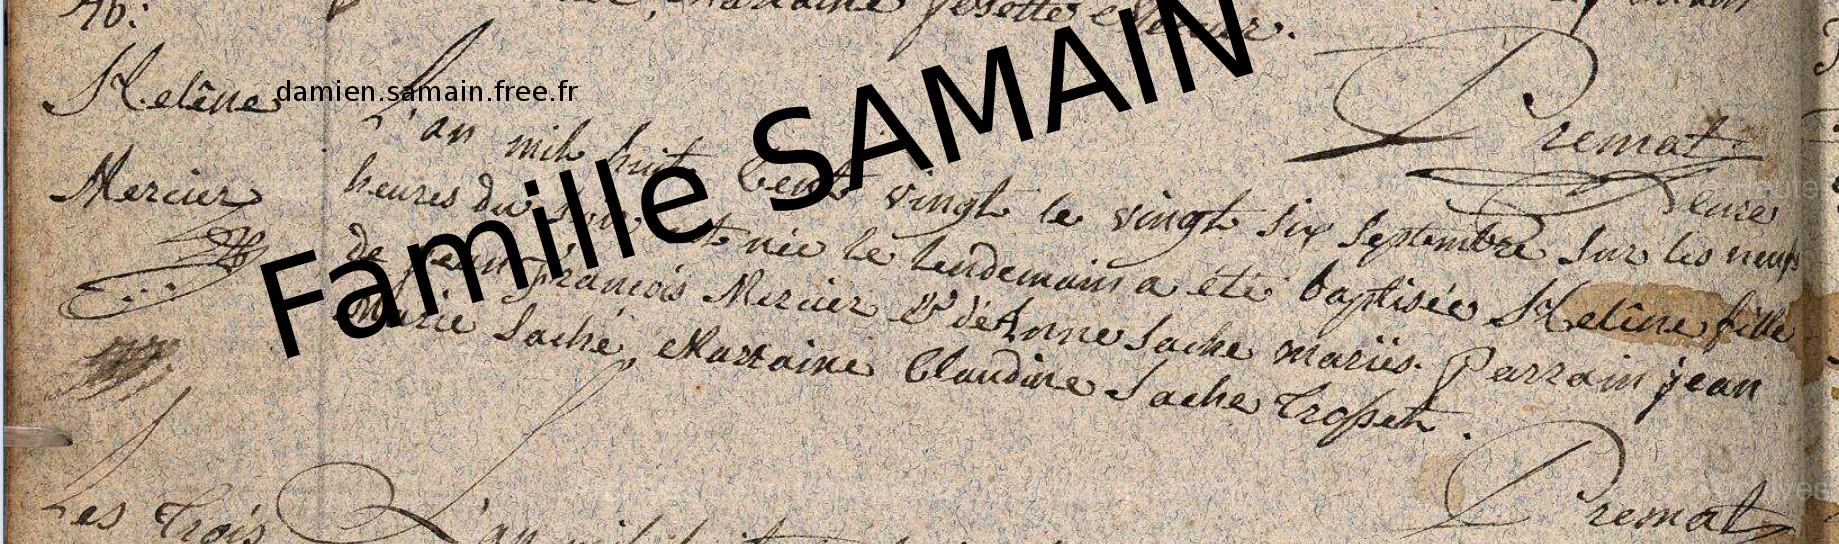 Helêne
Mercier
damien.samain.free.fr
Famille SAMAIN
Premat
L'an mil huit Cent vingt le vingt six Septembre sur les neufs
heures du soir est née le lendemain a été baptisée Helêne fille
de jean François Mercier & d'Anne Sache mariés. Parrain jean
Marie Saché, Marraine Claudine Sache Trosset.
Premat
Les Trois
L'an mil huit